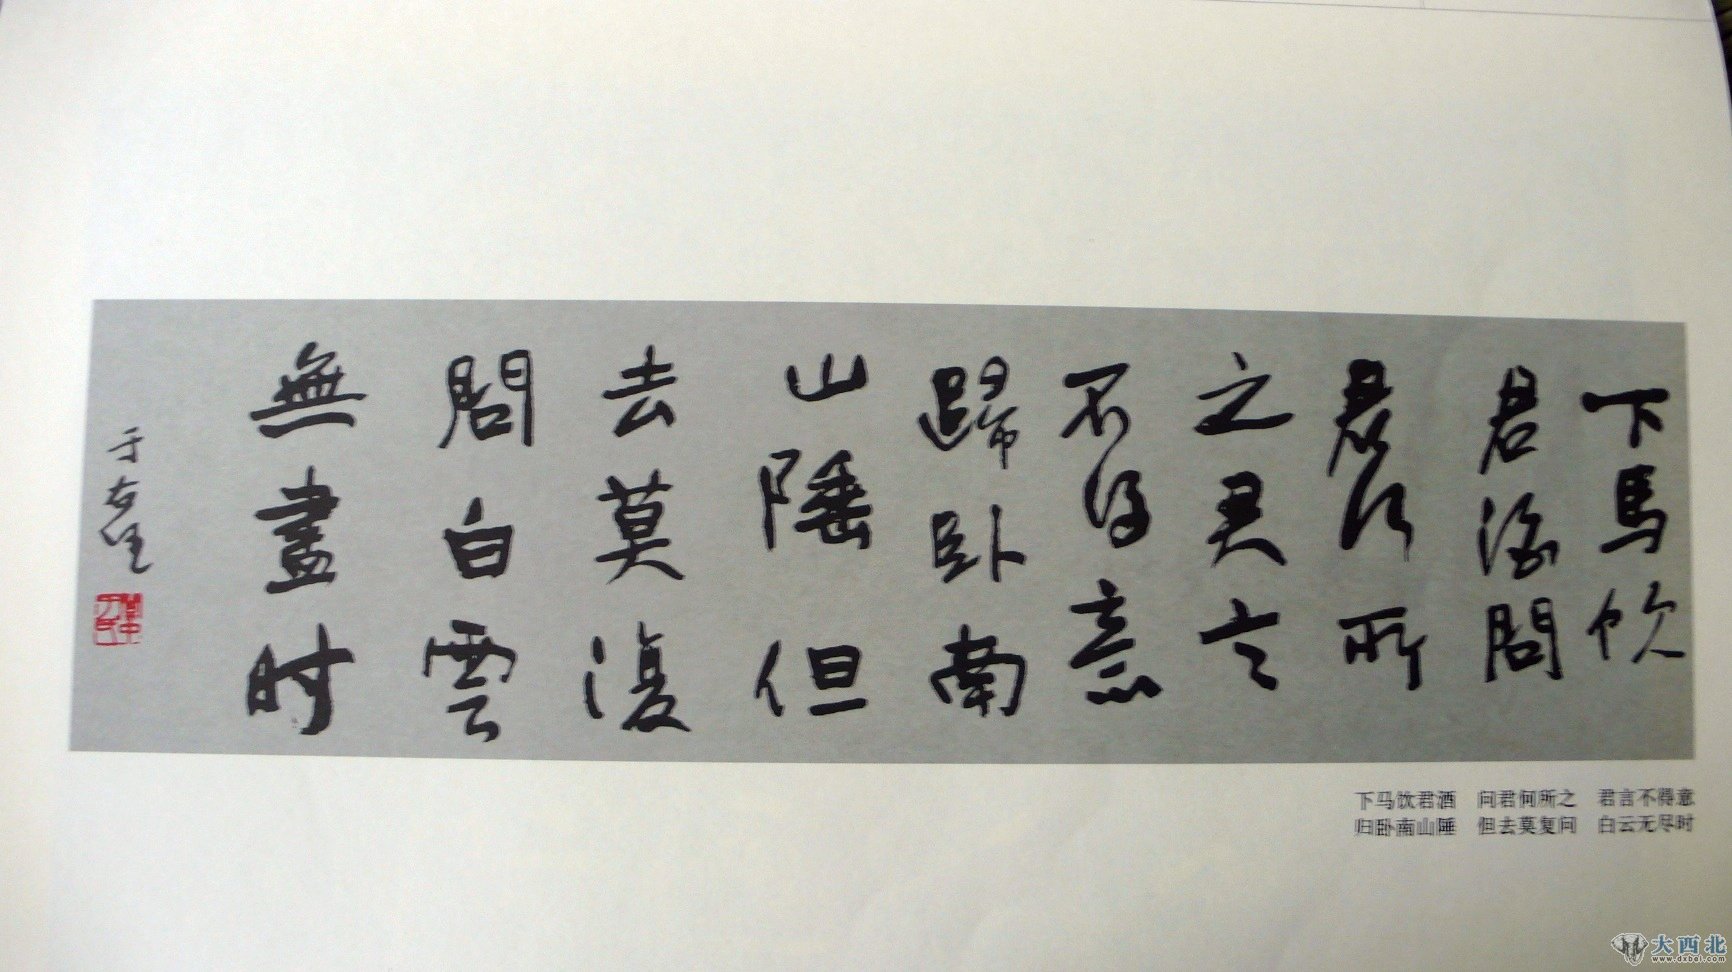 下馬飲
君酒問
君何所
之君言
不得意
歸卧南
山陲但
去莫復
問白雲
無盡時
于右任
下马饮君酒 问君何所之 君言不得意
归卧南山陲 但去莫复问 白云无尽时
大西北
www.dxbei.com